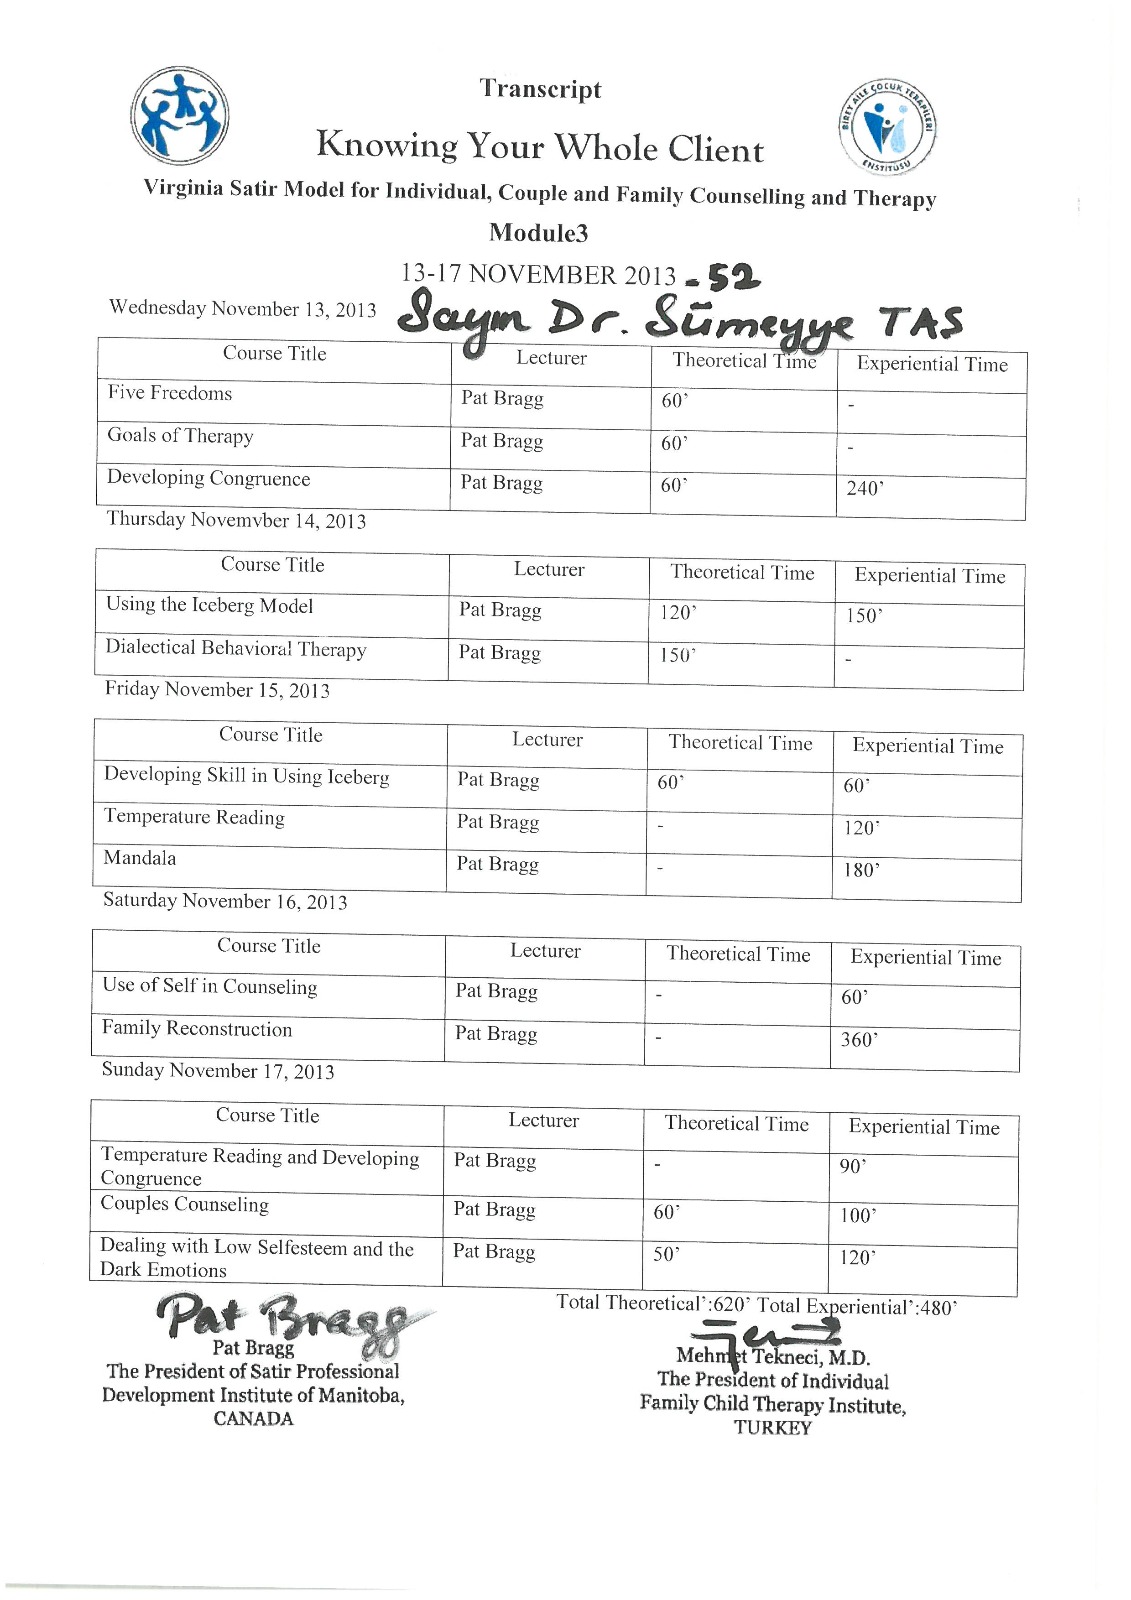 Transcript
BİREY AİLE ÇOCUK TERAPİLERİ
ENSTİTÜSÜ
Knowing Your Whole Client
Virginia Satir Model for Individual, Couple and Family Counselling and Therapy
Module3
13-17 NOVEMBER 2013 - 52
Wednesday November 13, 2013 Sayın Dr. Sümeyye TAS
Course Title Lecturer Theoretical Time Experiential Time
Five Freedoms Pat Bragg 60’ -
Goals of Therapy Pat Bragg 60’ -
Developing Congruence Pat Bragg 60’ 240’
Thursday Novemvber 14, 2013
Course Title Lecturer Theoretical Time Experiential Time
Using the Iceberg Model Pat Bragg 120’ 150’
Dialectical Behavioral Therapy Pat Bragg 150’ -
Friday November 15, 2013
Course Title Lecturer Theoretical Time Experiential Time
Developing Skill in Using Iceberg Pat Bragg 60’ 60’
Temperature Reading Pat Bragg - 120’
Mandala Pat Bragg - 180’
Saturday November 16, 2013
Course Title Lecturer Theoretical Time Experiential Time
Use of Self in Counseling Pat Bragg - 60’
Family Reconstruction Pat Bragg - 360’
Sunday November 17, 2013
Course Title Lecturer Theoretical Time Experiential Time
Temperature Reading and Developing Pat Bragg - 90’
Congruence
Couples Counseling Pat Bragg 60’ 100’
Dealing with Low Selfesteem and the Pat Bragg 50’ 120’
Dark Emotions
Total Theoretical’:620’ Total Experiential’:480’
Pat Bragg
Pat Bragg
The President of Satir Professional
Development Institute of Manitoba,
CANADA
Mehmet Tekneci, M.D.
The President of Individual
Family Child Therapy Institute,
TURKEY